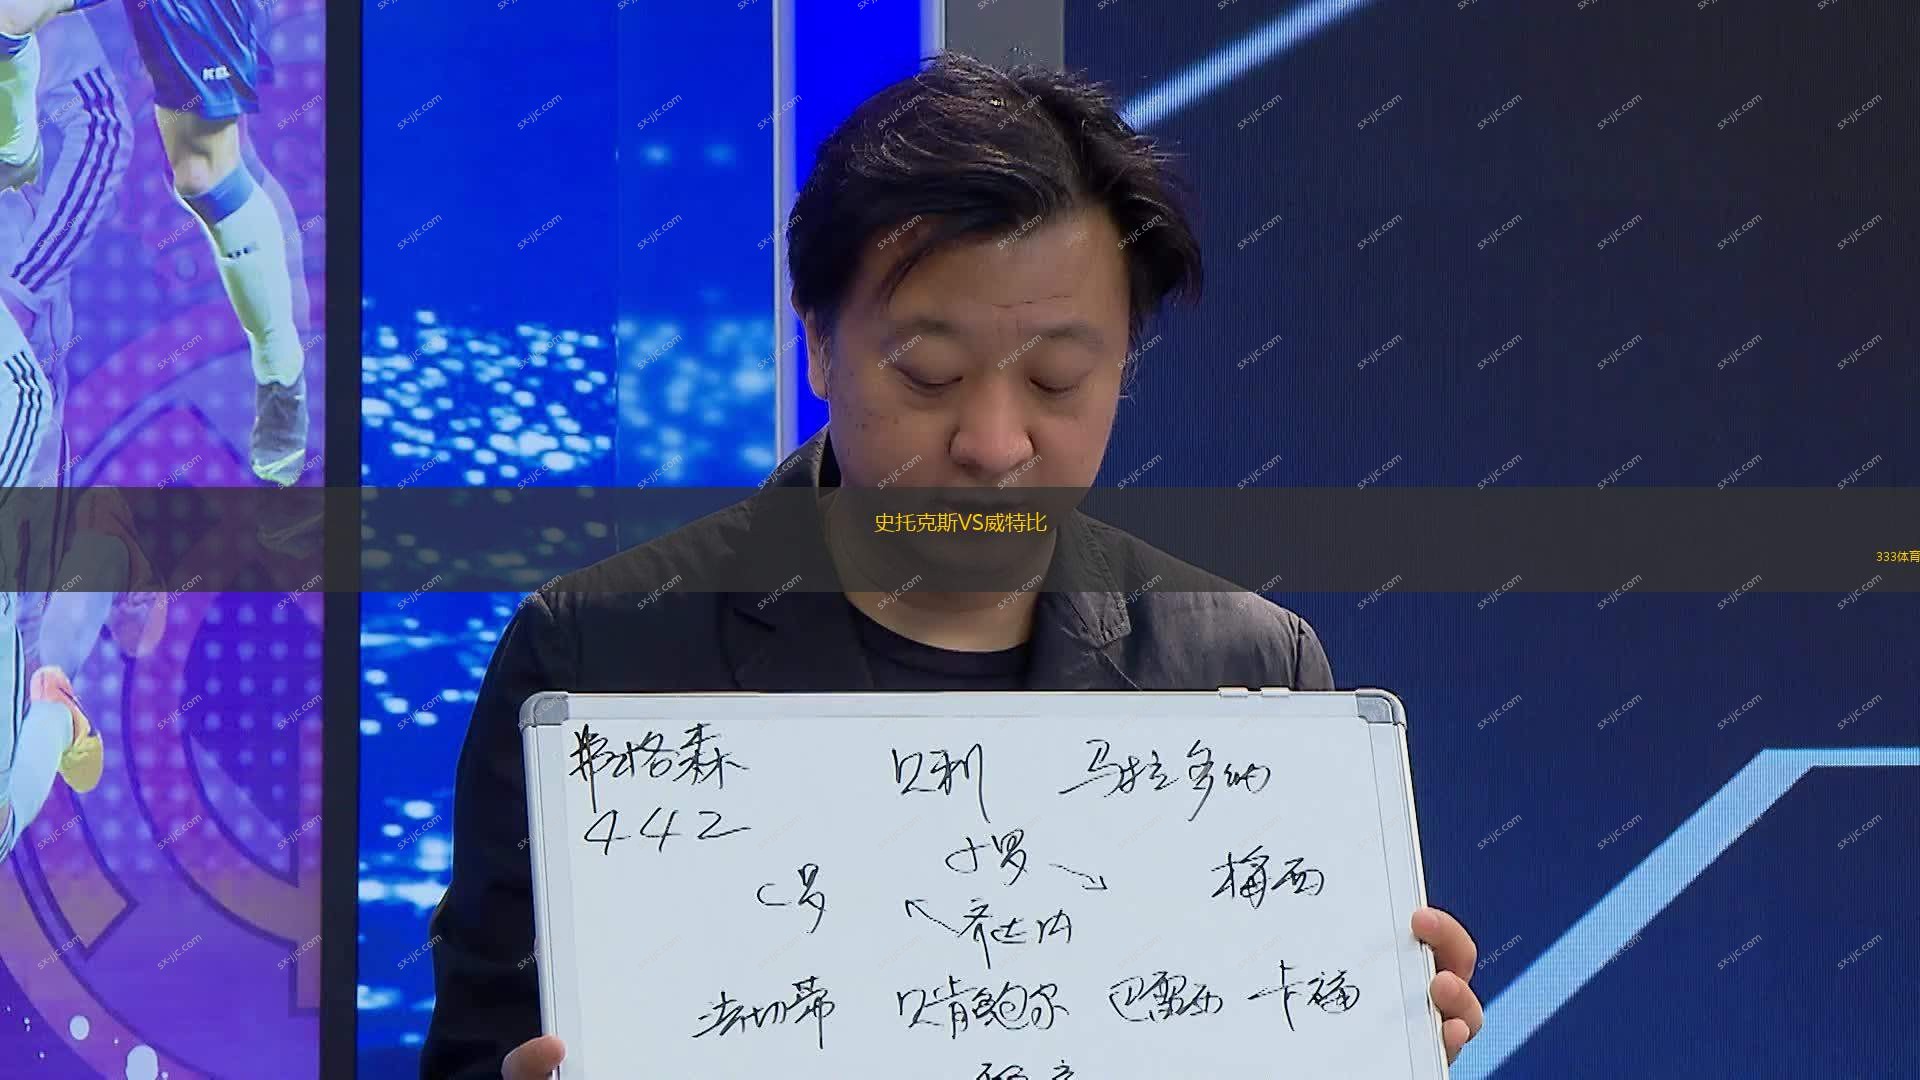 史托克斯VS威特比
333体育
弗格森 贝利 马拉多纳
442
小罗
C罗 梅西
齐达内
法切蒂 贝肯鲍尔 巴雷西 卡福
sx-jjc.com